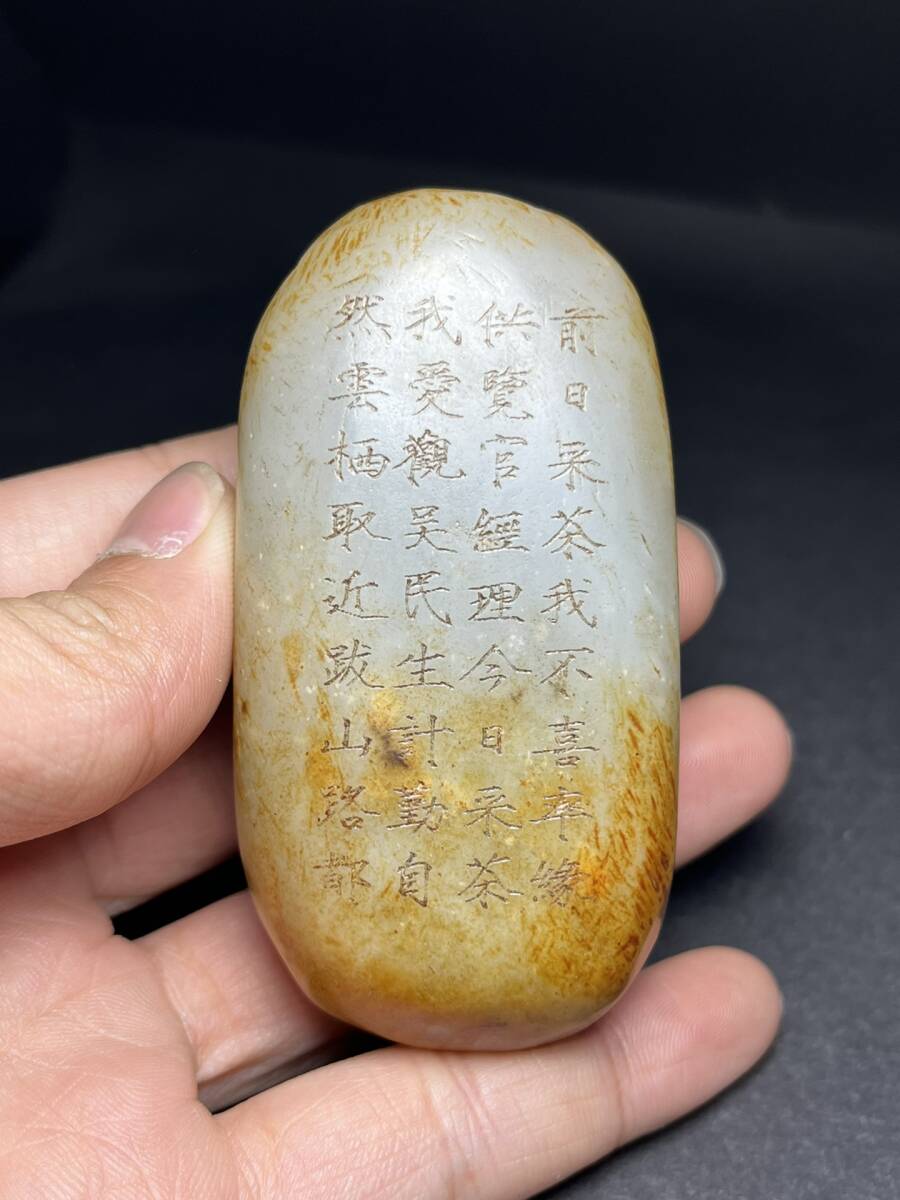 前日采茶我不喜率緣
供覽官經理今日采茶
我愛觀吴民生計勤自
然雲栖取近跋山路都